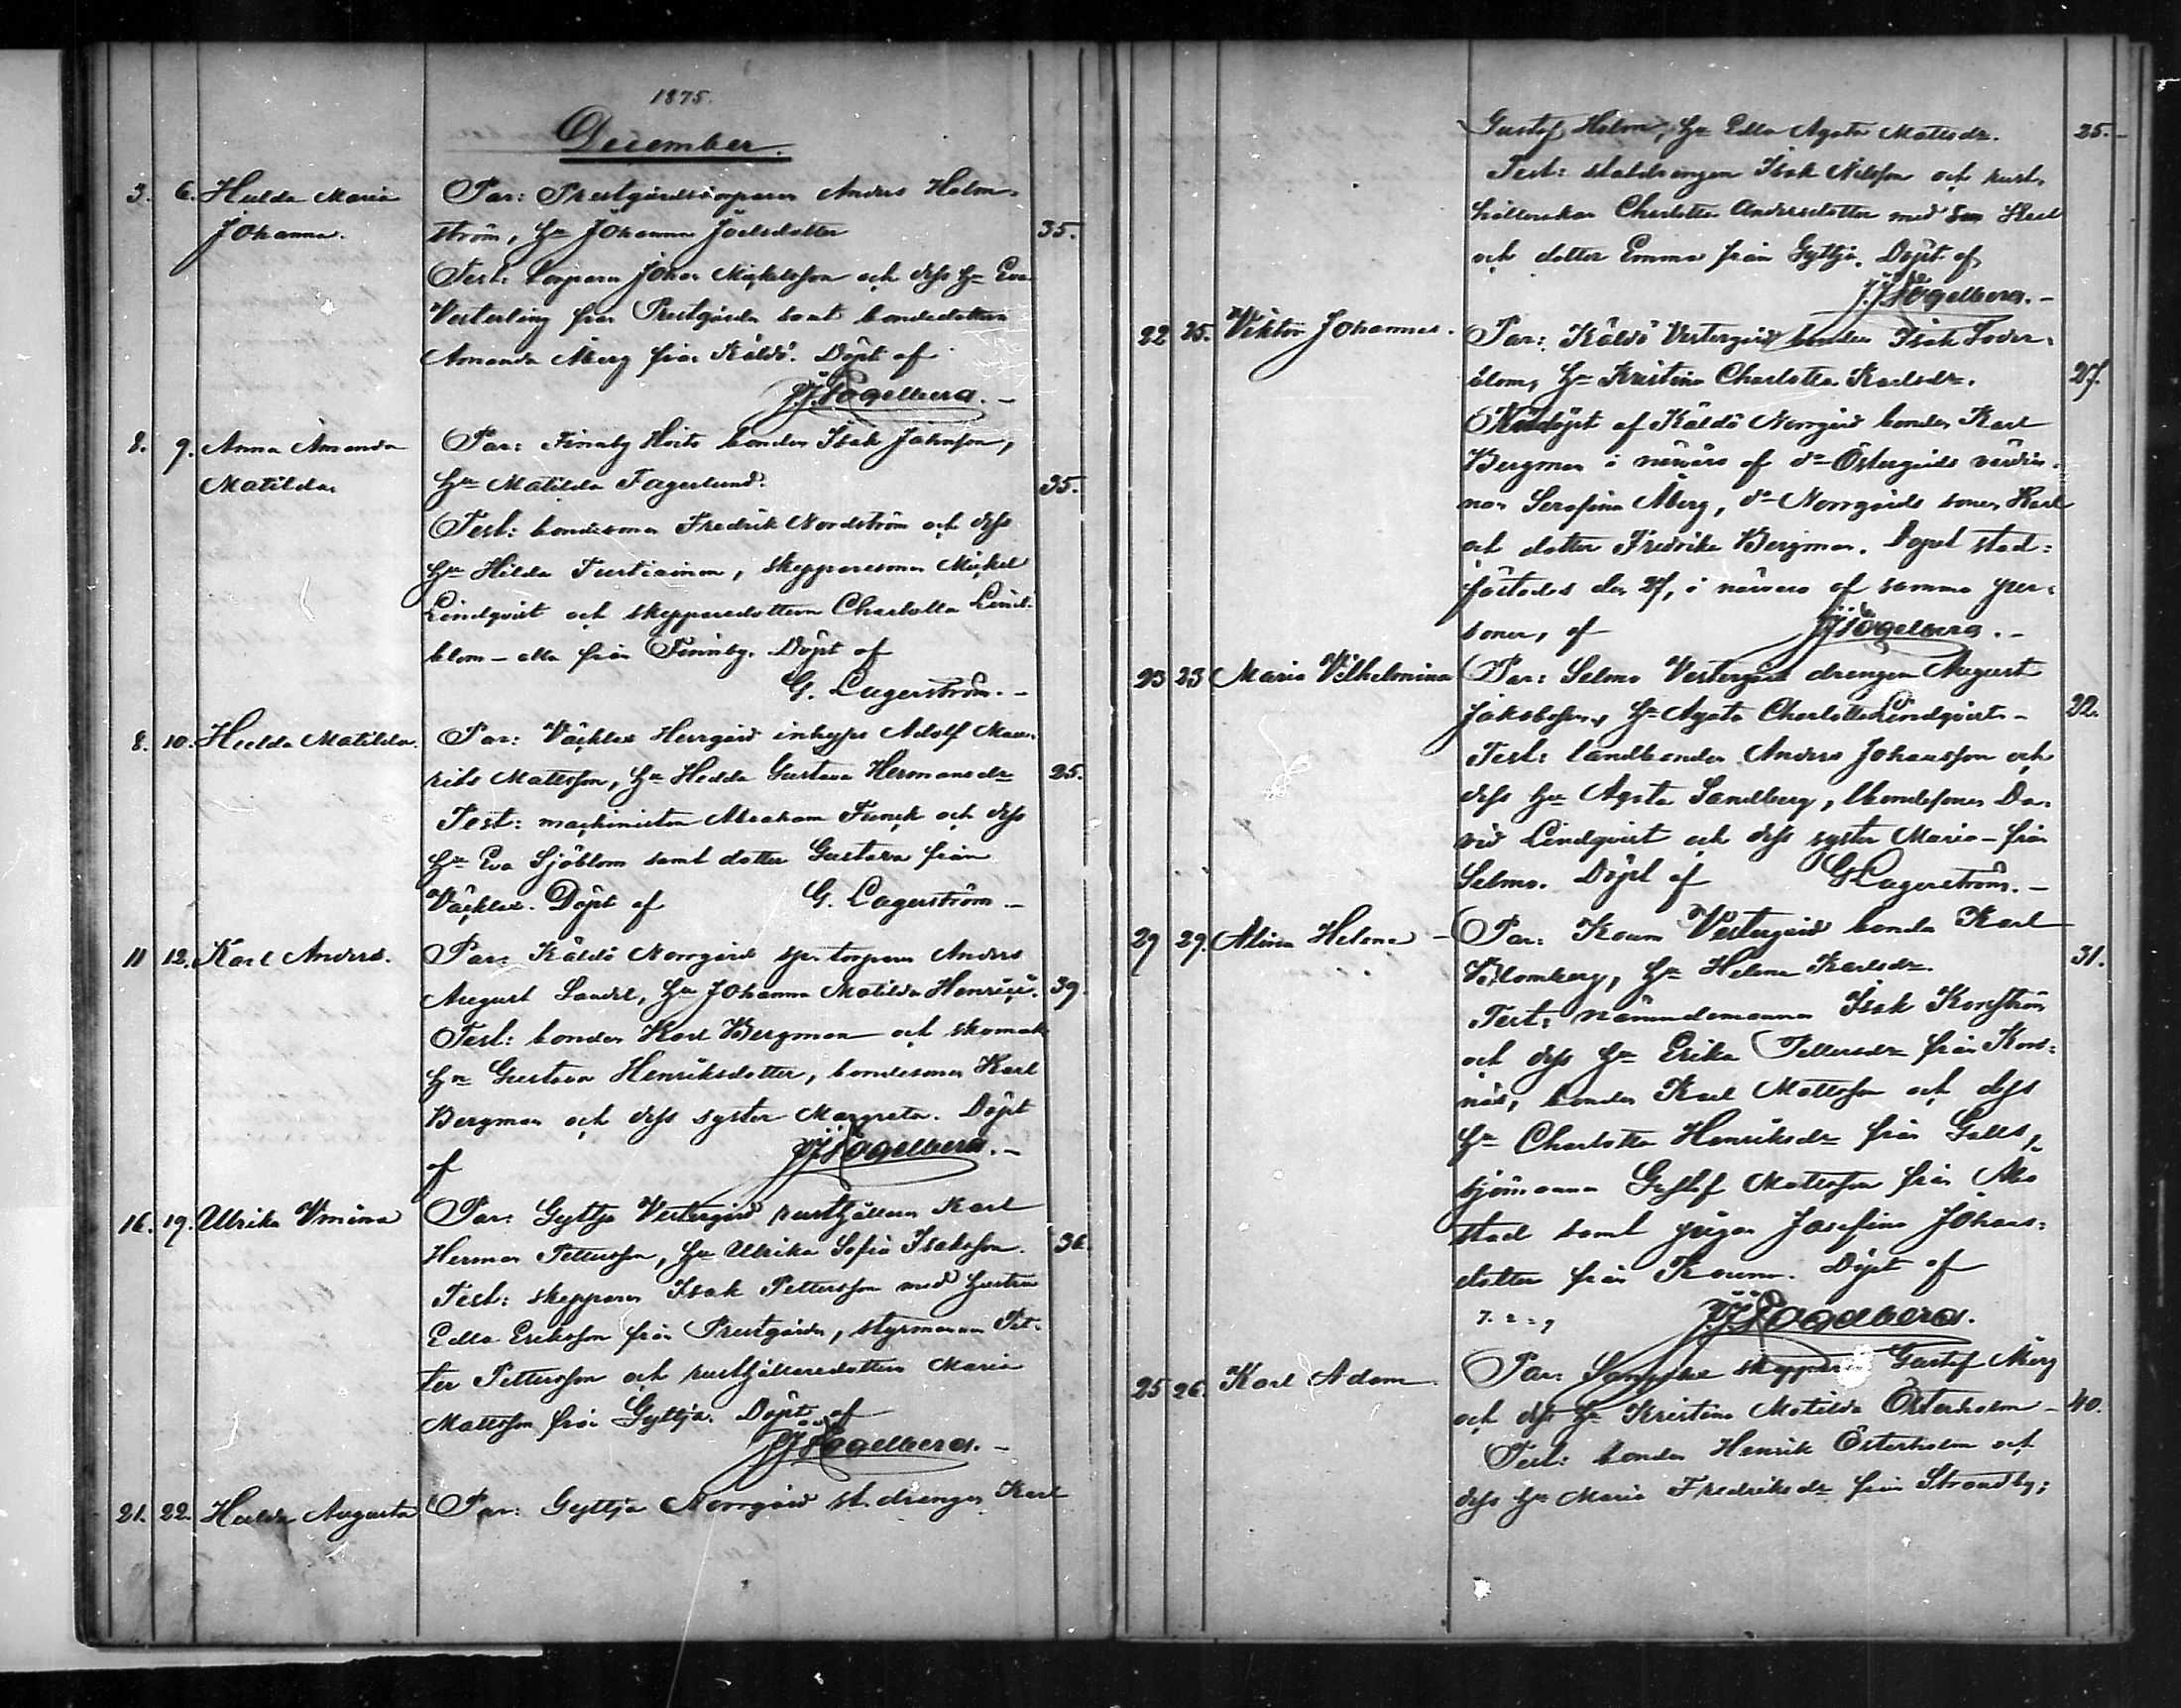 1875.
December.
3. 6. Hulda Maria Par: Prestgårdstorparen Anders Holm-
Johanna. ström, Hu Johanna Joelsdotter 35.
Test: torparen Johan Mickelsson och dess Hu Eva
Vesterling från Prestgården samt bondedottern
Amanda Åberg från Käldö. Döpt af
J.J. Fogelberg. –
8. 9. Anna Amanda Par: Finnby bonden Isak Johnsson,
Matilda Hu Matilda Fagerlund. 35.
Test: bondesonen Fredrik Nordström och dess
Hu Hilda, skepparesonen Mickel
Lindqvist och skepparedottern Charlotta Lind-
blom – alla från Finnby. Döpt af
G. Lagerström. –
8. 10. Hulda Matilda. Par: Herrgård inhyses Adolf Mau-
rits Mattsson, Hu Hedda Gustava Hermansdr 25.
Test: machinisten Abraham Funck och dess
Hu Eva Sjöblom samt dotter Gustava från
Döpt af G. Lagerström –
11 12. Karl Anders. Par: Käldö Norrgård sp. torparen Anders
August Sandel, Hu Johanna Matilda 39.
Test: bonden Karl Bergman och skomak.
Hu Gustava Henriksdotter, bondesonen Karl
Bergman och dess syster Margreta. Döpt
af J.J. Fogelberg. –
16. 19. Ulrika Vmina Par: Gyttja Vestergård rusthållaren Karl
Herman Pettersson, Hu Ulrika Sofia Isaksson. 36
Test: skepparen Isak Pettersson med hustru
Edla Eriksson från Prestgården, styrmannen Pet-
ter Pettersson och rusthållaredottern Maria
Mattsson från Gyttja. Döpt af
J.J. Fogelberg. –
21. 22. Hulda Augusta Par: Gyttja Norrgård st. drengen Karl
Gustaf Holm, Hu Edla Agata Mattsdr. 25. –
Test: staldrengen Isak Nilsson och rust-
hållerskan Charlotta Andersdotter med son Karl
och dotter Emma från Gyttja. Döpt af
J.J. Fogelberg. –
22 25. Viktor Johannes. Par: Käldö Vestergård bonden Isak Söder-
blom, Hu Kristina Charlotta Karlsdr. 27.
Nöddöpt af Käldö Norrgård bonden Karl
Bergman i närvaro af do Östergårds värdin-
nan Serafina Åberg, do Norrgårds sonen Karl
och dotter Fredrika Bergman. Dopet stad-
fästades den 27, i närvaro af samma per-
soner, af J.J. Fogelberg. –
23 25 Maria Vilhelmina Par: Selmo Vestergård drengen August
Jakobsson, Hu Agata Charlotta Lindqvist – 32.
Test: landbonden Anders Johansson och
dess Hu Agata Sandberg, bondesonen Da-
vid Lindqvist och dess syster Maria – från
Selmo. Döpt af G Lagerström. –
29 29. Alina Helena – Par: Koum Vestergård bonden Karl
Blomberg, Hu Helena Karlsdr. 31.
Test: nämndemannen Isak
och dess Hu Erika Pettersdr från Kors-
näs, bonden Karl Mattsson och dess
Hu Charlotta Henriksdr från Galts,
sjömannen Gustof Mattsson från Åbo
stad samt pigan Josefina Johans-
dotter från Koum. Döpt af
J.J. Fogelberg.
25 26. Karl Adam. Par: skepparen Gustaf Åberg
och dess Hu Kristina Matilda Österholm – 40.
Test: bonden Henrik Österholm och
dess Hu Maria Fredriksdr från Strandby;